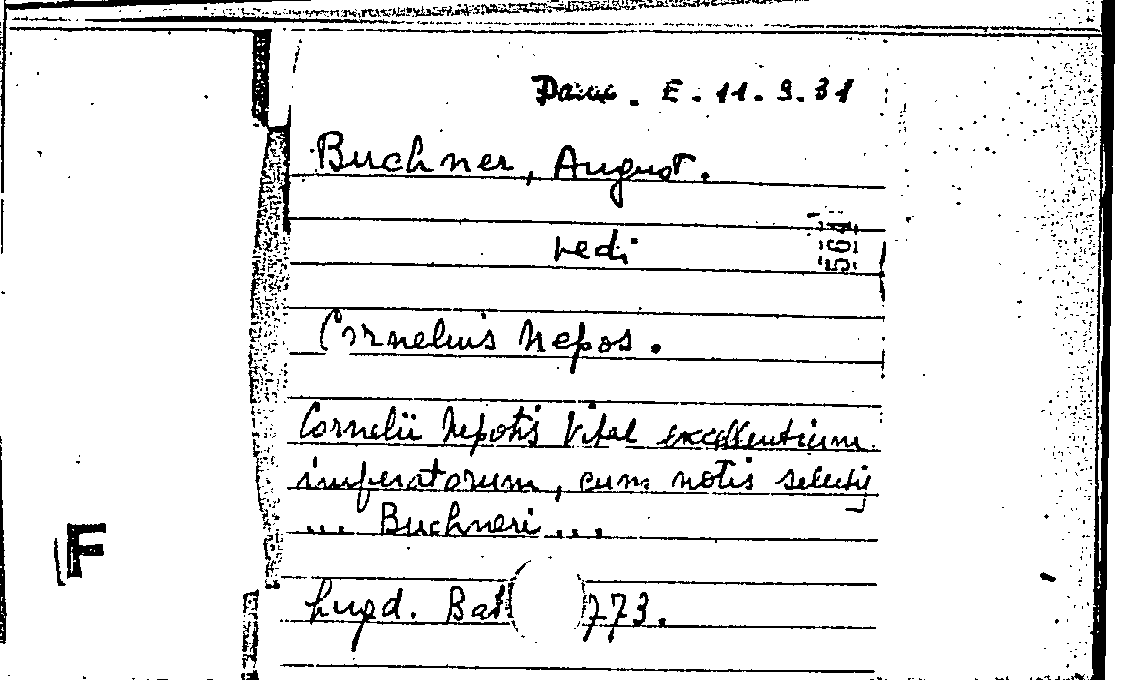 Danu. E. 11. 9. 31
Buchner, August.
redi
564
Cornelius Nepos.
Cornelii Nepotis Vitae excellentium
imperatorum, cum notis selectis
... Buchneri ...
Lugd. Bat 773.
F